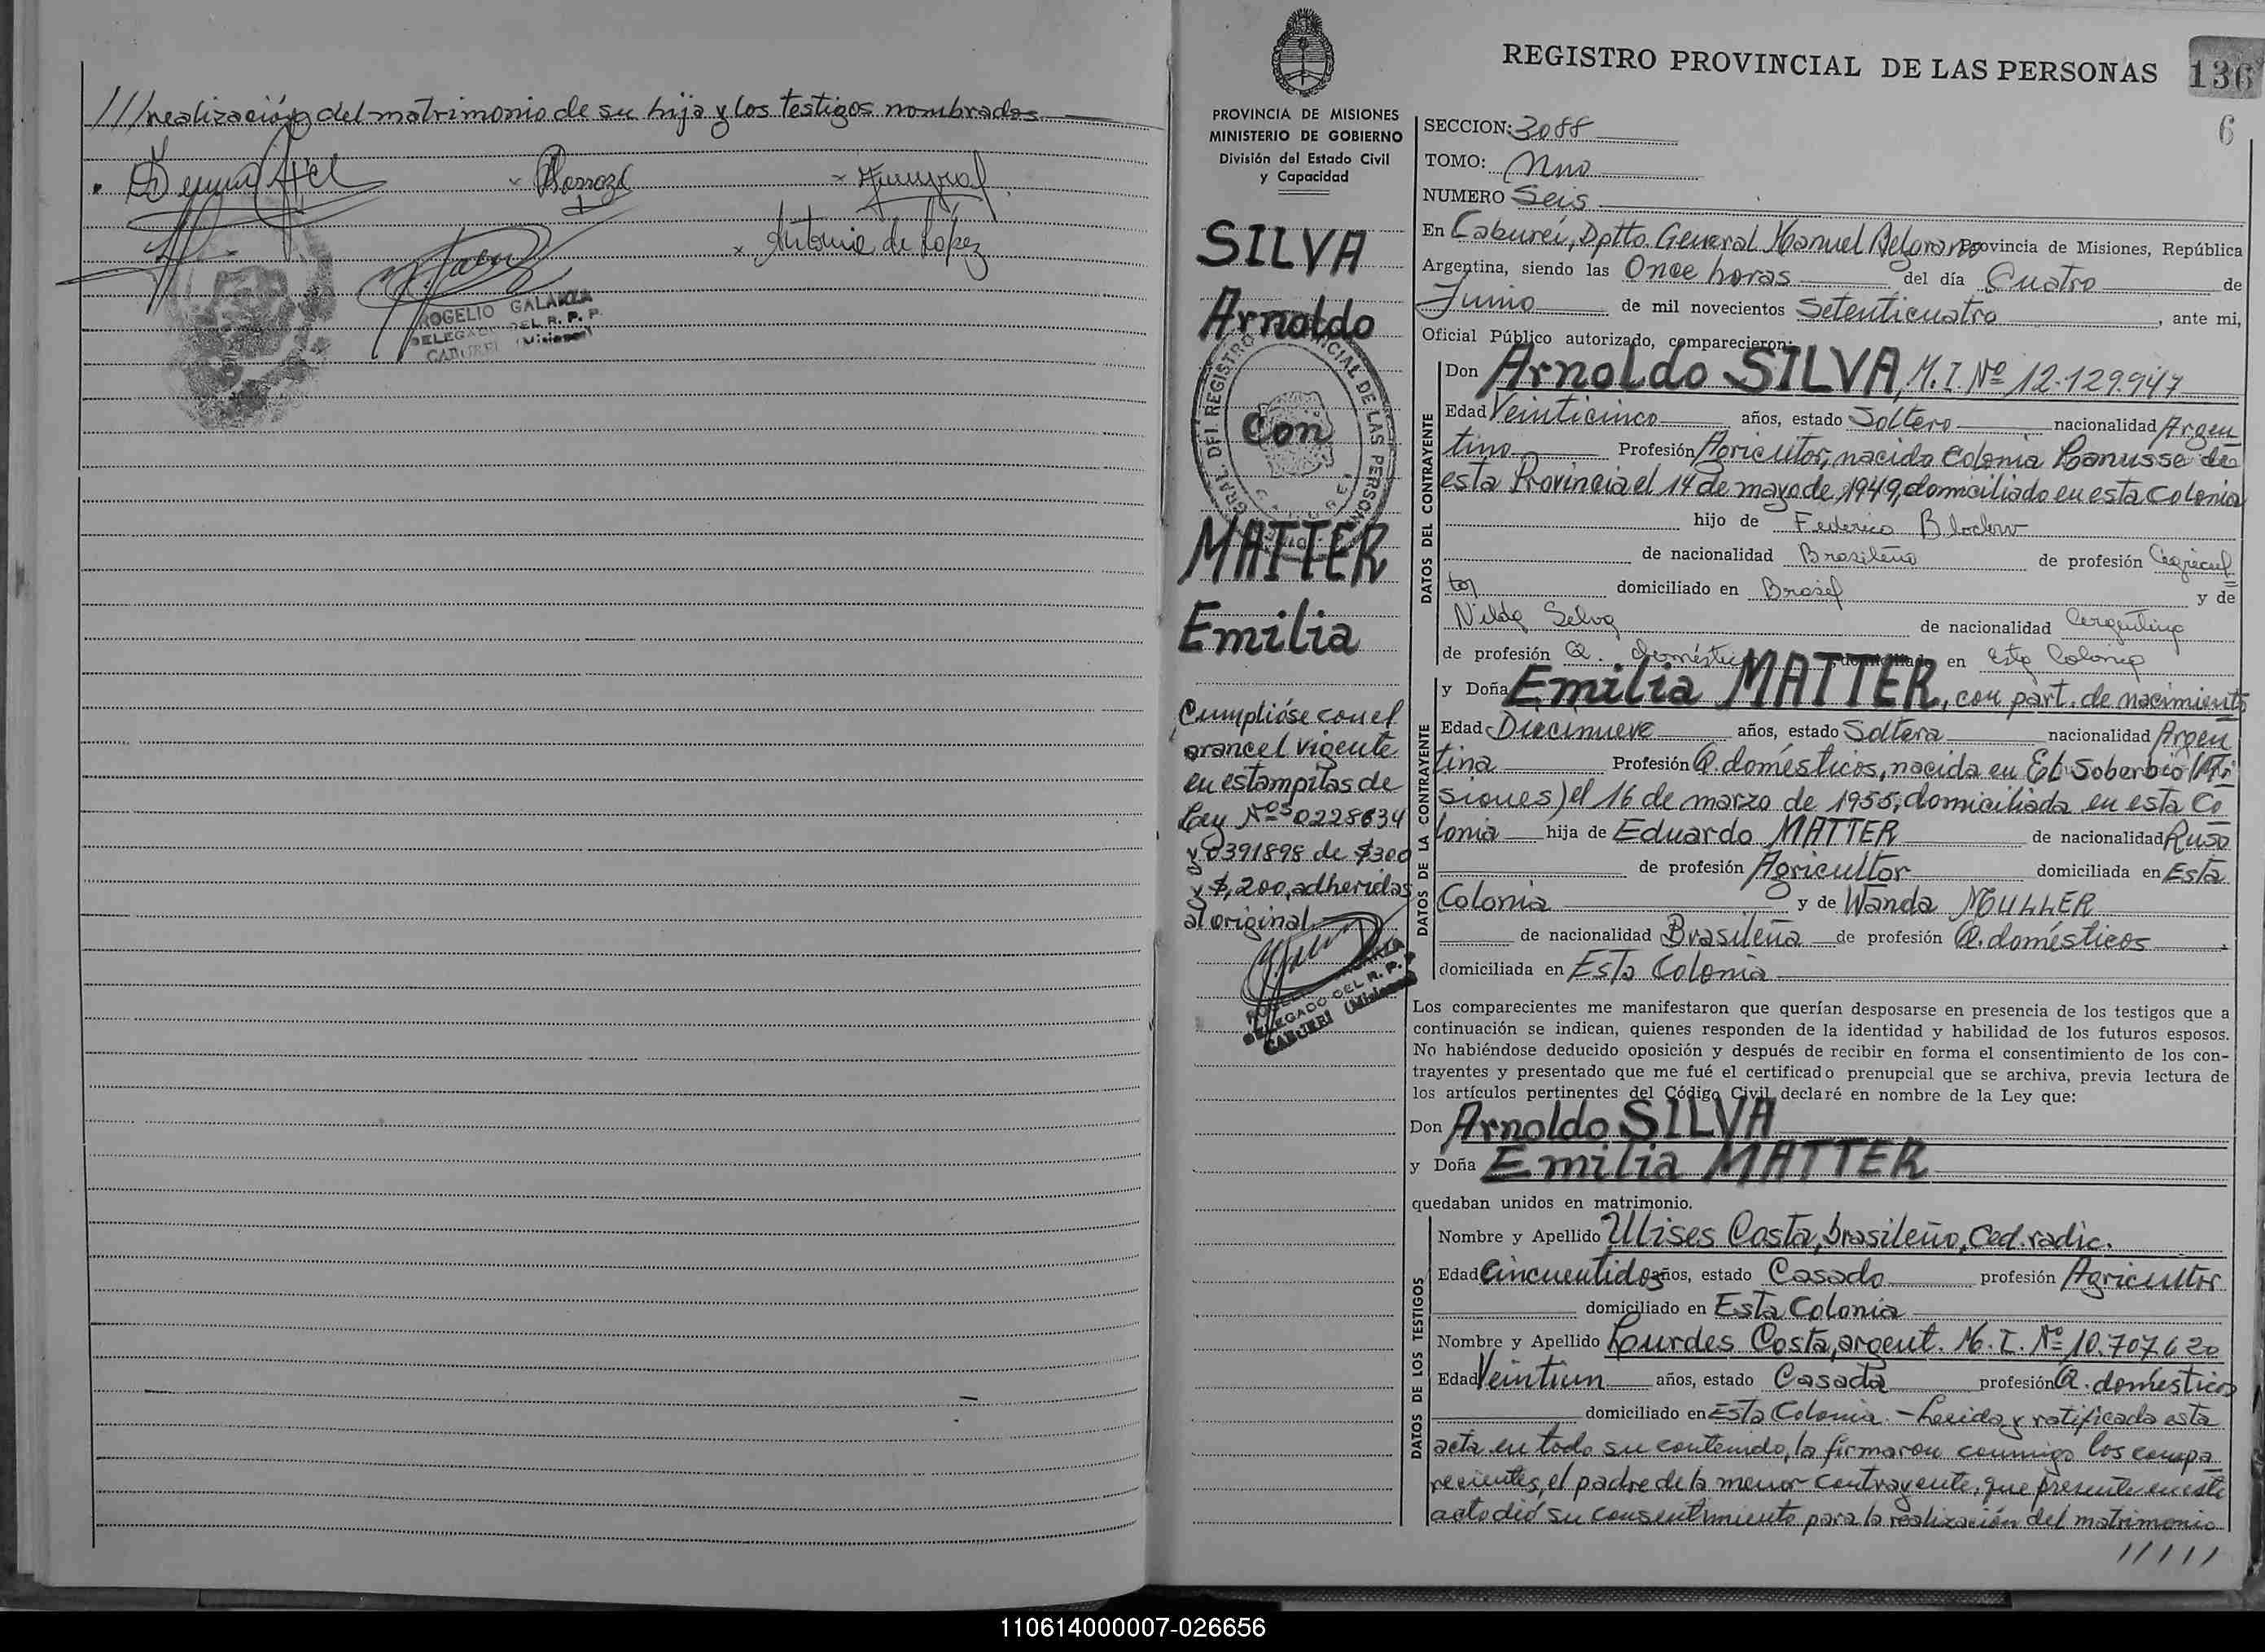 ///realización del matrimonio de su hija y los testigos nombrados
Antonio de López
ROGELIO GALARZA
DELEGADO DEL R. P. P.
CABUREI (Misiones)
PROVINCIA DE MISIONES
MINISTERIO DE GOBIERNO
División del Estado Civil
y Capacidad
SILVA
Arnoldo
Con
MATTER
Emilia
Cumplióse con el
arancel vigente
en estampitas de
Ley Nºs 0228634
y 0391898 de $300
y $,200, adheridas
al original.
DELEGADO DEL R. P. P.
CABUREI (Misiones)
REGISTRO PROVINCIAL DE LAS PERSONAS
136
6
SECCION: 3088
TOMO: Uno
NUMERO Seis
En Caburéi, Dptto. General Manuel Belgrano Provincia de Misiones, República
Argentina, siendo las Once horas del día Cuatro de
Junio de mil novecientos Setenticuatro, ante mi,
Oficial Público autorizado, comparecieron:
DATOS DEL CONTRAYENTE
Don Arnoldo SILVA, M. I. Nº 12.129.947
Edad Veinticinco años, estado Soltero nacionalidad Argen
tino Profesión Agricultor, nacido Colonia Lanusse de
esta Provincia el 14 de mayo de 1949, domiciliado en esta Colonia
hijo de Federico
de nacionalidad Brasileño de profesión Agricul
tor domiciliado en Brasil y de
Nilda Silva de nacionalidad Argentina
de profesión Q. domésticos domiciliada en esta Colonia
DATOS DE LA CONTRAYENTE
y Doña Emilia MATTER, con part. de nacimiento
Edad Diecinueve años, estado Soltera nacionalidad Argen
tina Profesión Q. domésticos, nacida en El Soberbio (Mi
siones) el 16 de marzo de 1955, domiciliada en esta Co
lonia hija de Eduardo MATTER de nacionalidad Ruso
de profesión Agricultor domiciliada en Esta
Colonia y de Wanda MULLER
de nacionalidad Brasileña de profesión Q. domésticos,
domiciliada en Esta Colonia
Los comparecientes me manifestaron que querían desposarse en presencia de los testigos que a
continuación se indican, quienes responden de la identidad y habilidad de los futuros esposos.
No habiéndose deducido oposición y después de recibir en forma el consentimiento de los con-
trayentes y presentado que me fué el certificado prenupcial que se archiva, previa lectura de
los artículos pertinentes del Código Civil, declaré en nombre de la Ley que:
Don Arnoldo SILVA
y Doña Emilia MATTER
quedaban unidos en matrimonio.
DATOS DE LOS TESTIGOS
Nombre y Apellido Ulises Costa, brasileño, Ced. radic.
Edad Cincuentidos años, estado Casado profesión Agricultor
domiciliado en Esta Colonia
Nombre y Apellido Lourdes Costa, argent. M. I. Nº 10.707.620
Edad Veintiun años, estado Casada profesión Q. domésticos
domiciliado en Esta Colonia. - Leida y ratificada esta
acta en todo su contenido, la firmaron conmigo los compa
recientes, el padre de la menor contrayente, que presente en este
acto dió su consentimiento para la realización del matrimonio
/////
110614000007-026656